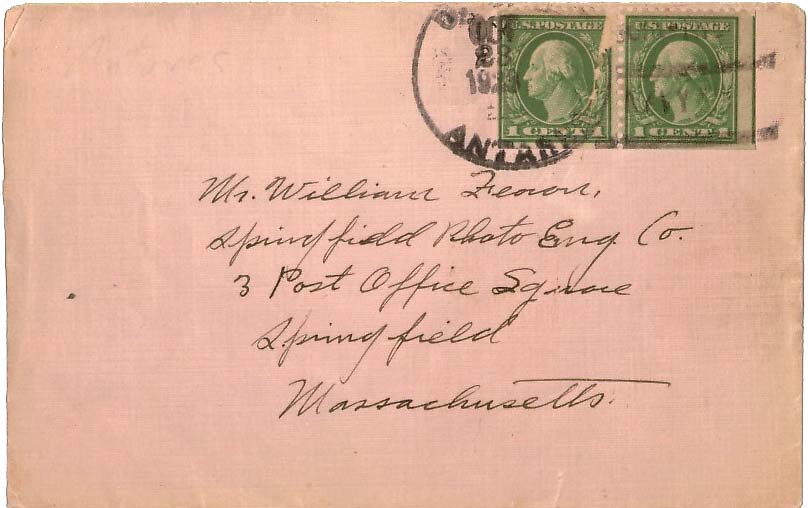 U.S. POSTAGE U.S. POSTAGE
28
ANTAR
1 CENT 1 1 CENT 1
Mr. William Fearon,
Springfield Photo Eng. Co.
3 Post Office Square
Springfield
Massachusetts.